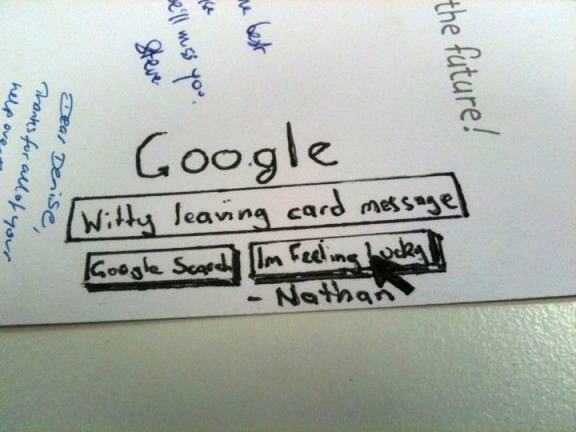 Google
Witty leaving card message
Google Search
Im Feeling Lucky
- Nathan
the future!
best
we'll miss you.
Steve
Dear Denise,
Thanks for all of your
help over